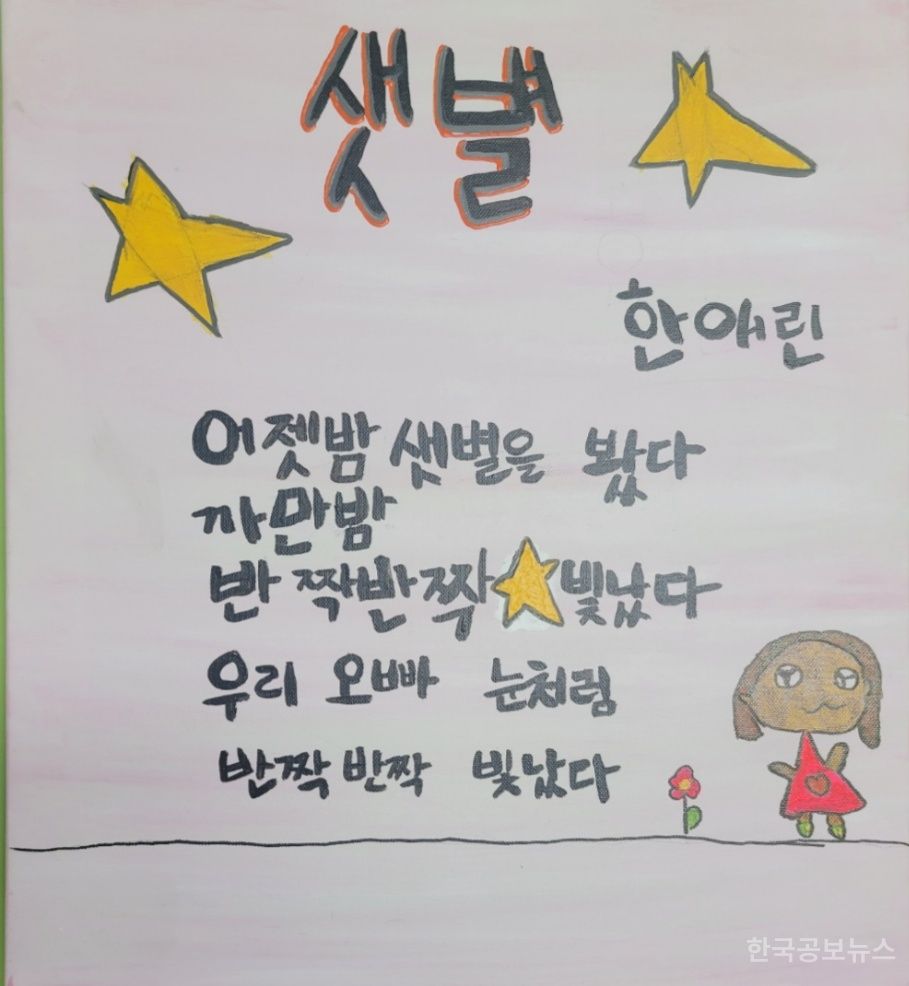 샛별
한애린
어젯밤 샛별을 봤다
까만밤
반짝반짝 빛났다
우리 오빠 눈처럼
반짝반짝 빛났다
한국공보뉴스